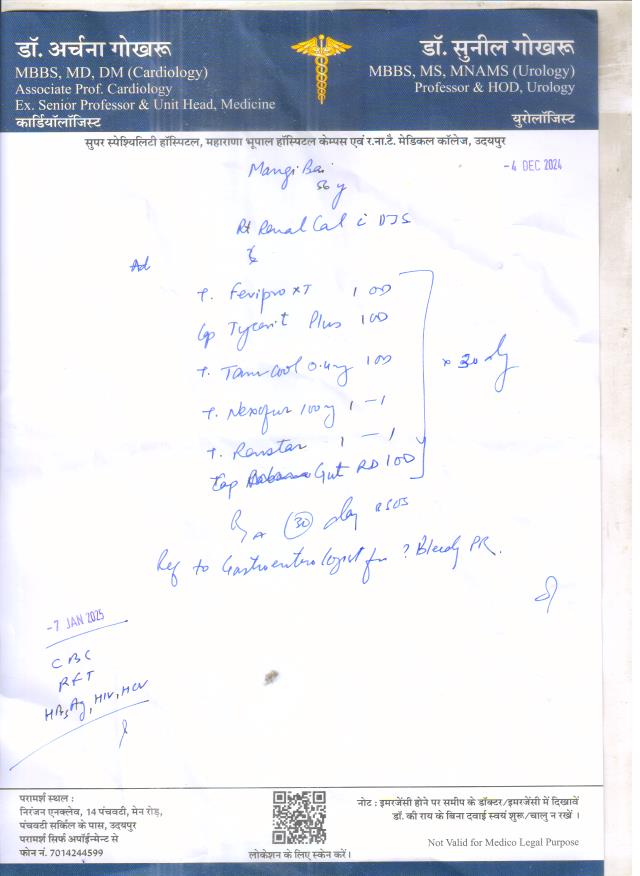 डॉ. अर्चना गोखरू
MBBS, MD, DM (Cardiology)
Associate Prof. Cardiology
Ex. Senior Professor & Unit Head, Medicine
कार्डियॉलॉजिस्ट
डॉ. सुनील गोखरू
MBBS, MS, MNAMS (Urology)
Professor & HOD, Urology
यूरोलॉजिस्ट
सुपर स्पेश्यिलिटी हॉस्पिटल, महाराणा भूपाल हॉस्पिटल केम्पस एवं र.ना.टै. मेडिकल कॉलेज, उदयपुर
-4 DEC 2024
Mangi Bai
56 y
Rt Renal Cal c DJS
Ad
T. Feripro XT 1 OD
Cap Plus 1OD
T. Tamcool 0.4mg 1OD
T. 100mg 1-1
T. Renstar 1-1
Cap Gut RD 1OD
x 30 dy
30 day
Ref to Gastroenterologist for ? Bleedy PR.
-7 JAN 2025
CBC
RFT
HBsAg, HIV, HCV
परामर्श स्थल :
निरंजन एनक्लेव, 14 पंचवटी, मेन रोड़,
पंचवटी सर्किल के पास, उदयपुर
परामर्श सिर्फ अपॉईन्मेन्ट से
फोन नं. 7014244599
लोकेशन के लिए स्केन करें।
नोट : इमरजेंसी होने पर समीप के डॉक्टर/इमरजेंसी में दिखावें
डॉ. की राय के बिना दवाई स्वयं शुरू/चालु न रखें ।
Not Valid for Medico Legal Purpose